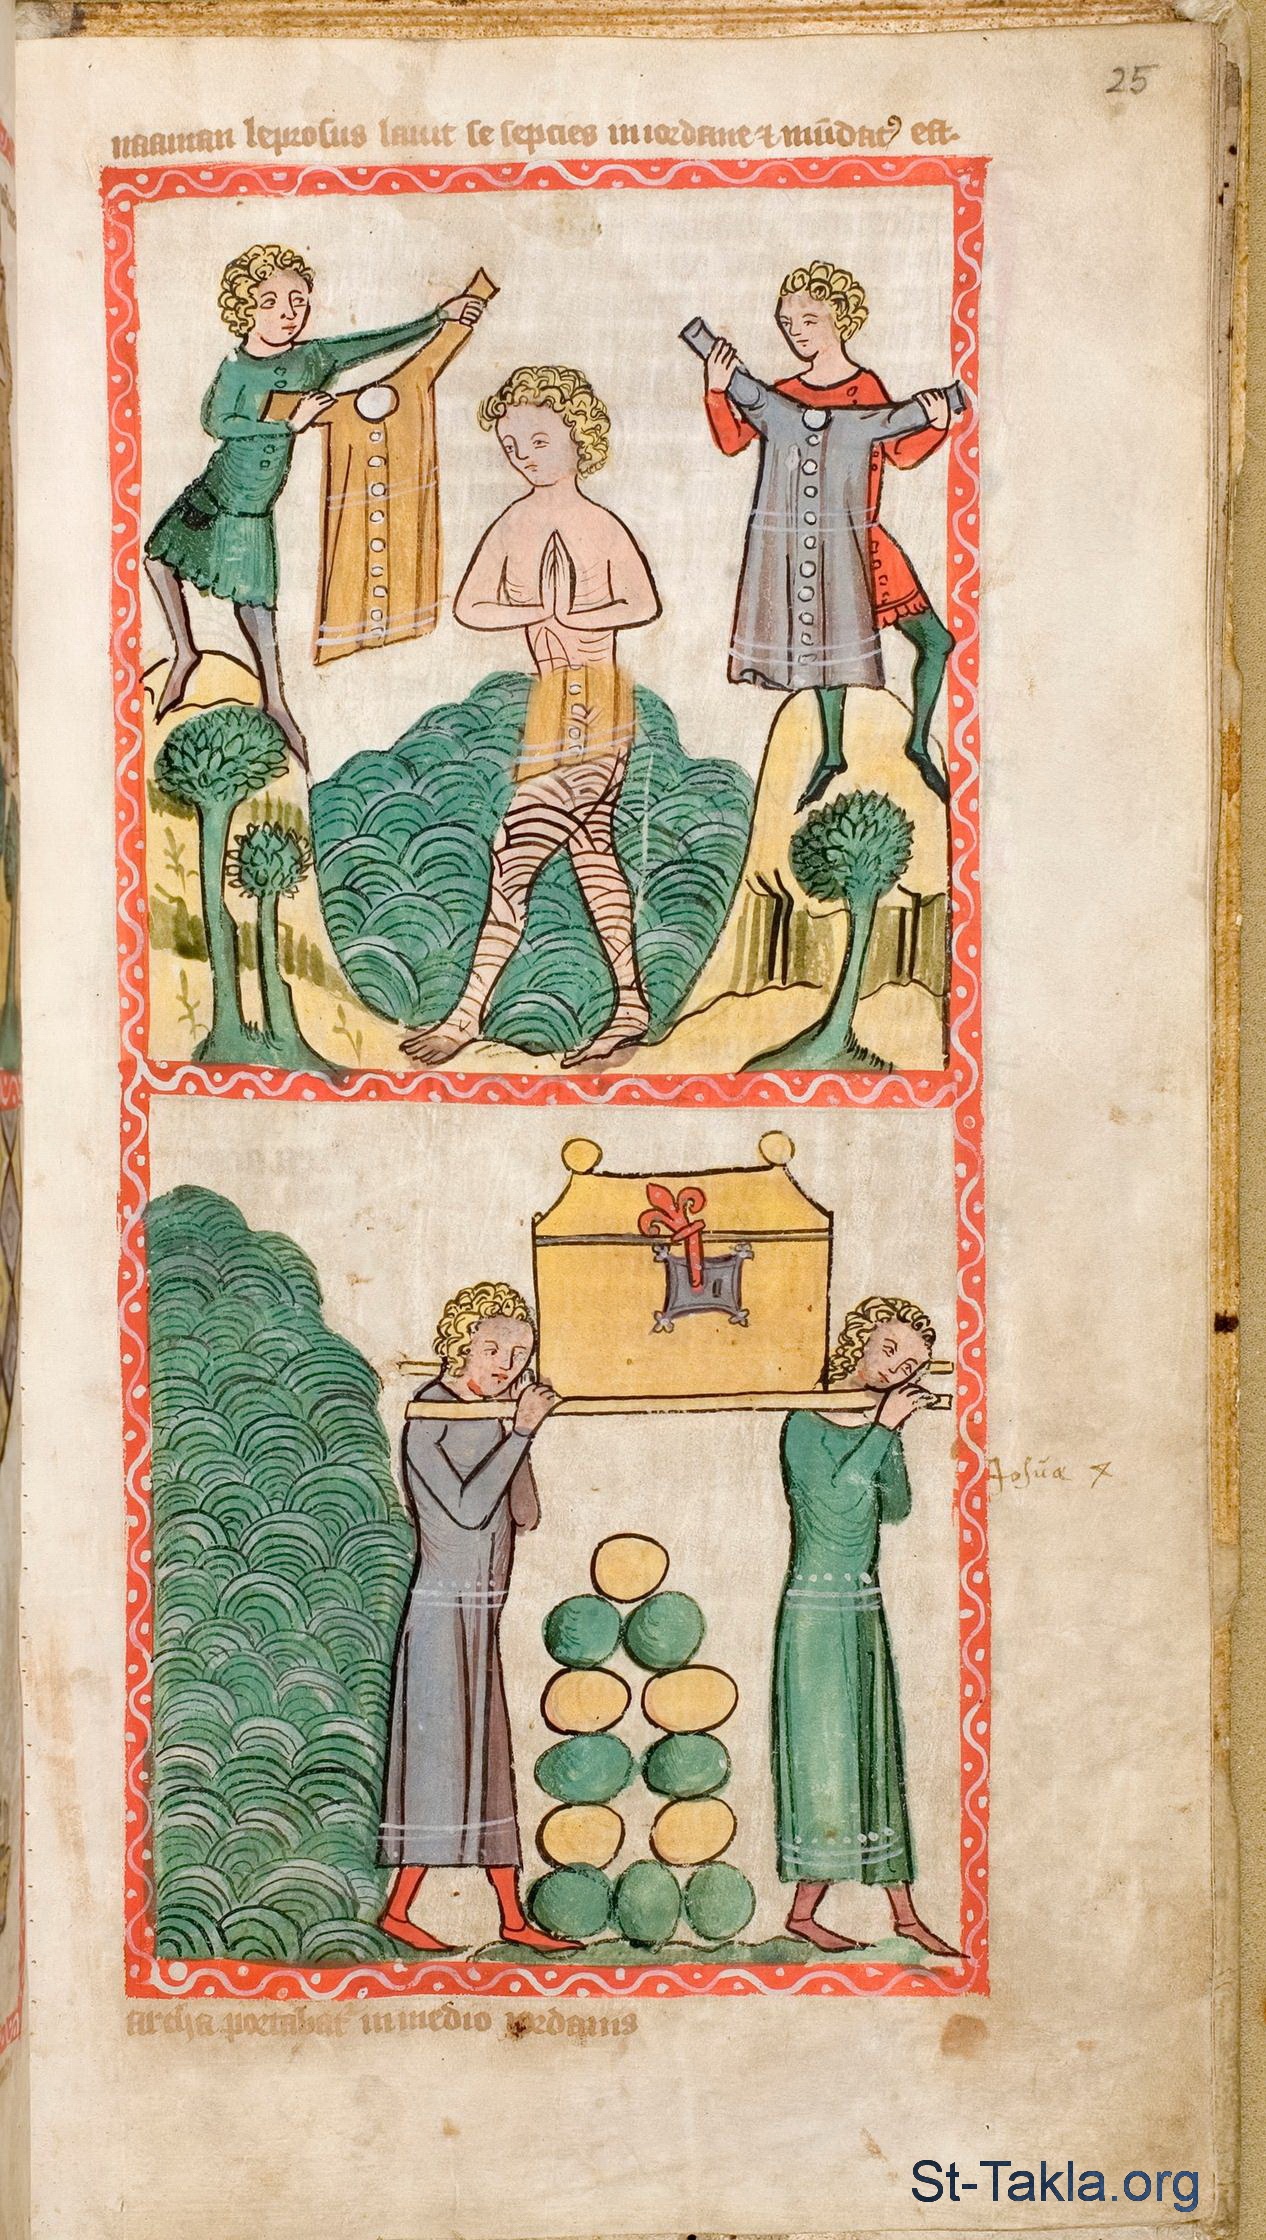 25
naaman leprosus lauit se septies in iordane ⁊ mūdatꝰ est.
Josua 4
archa portabat᷑ in medio iordanis
St-Takla.org